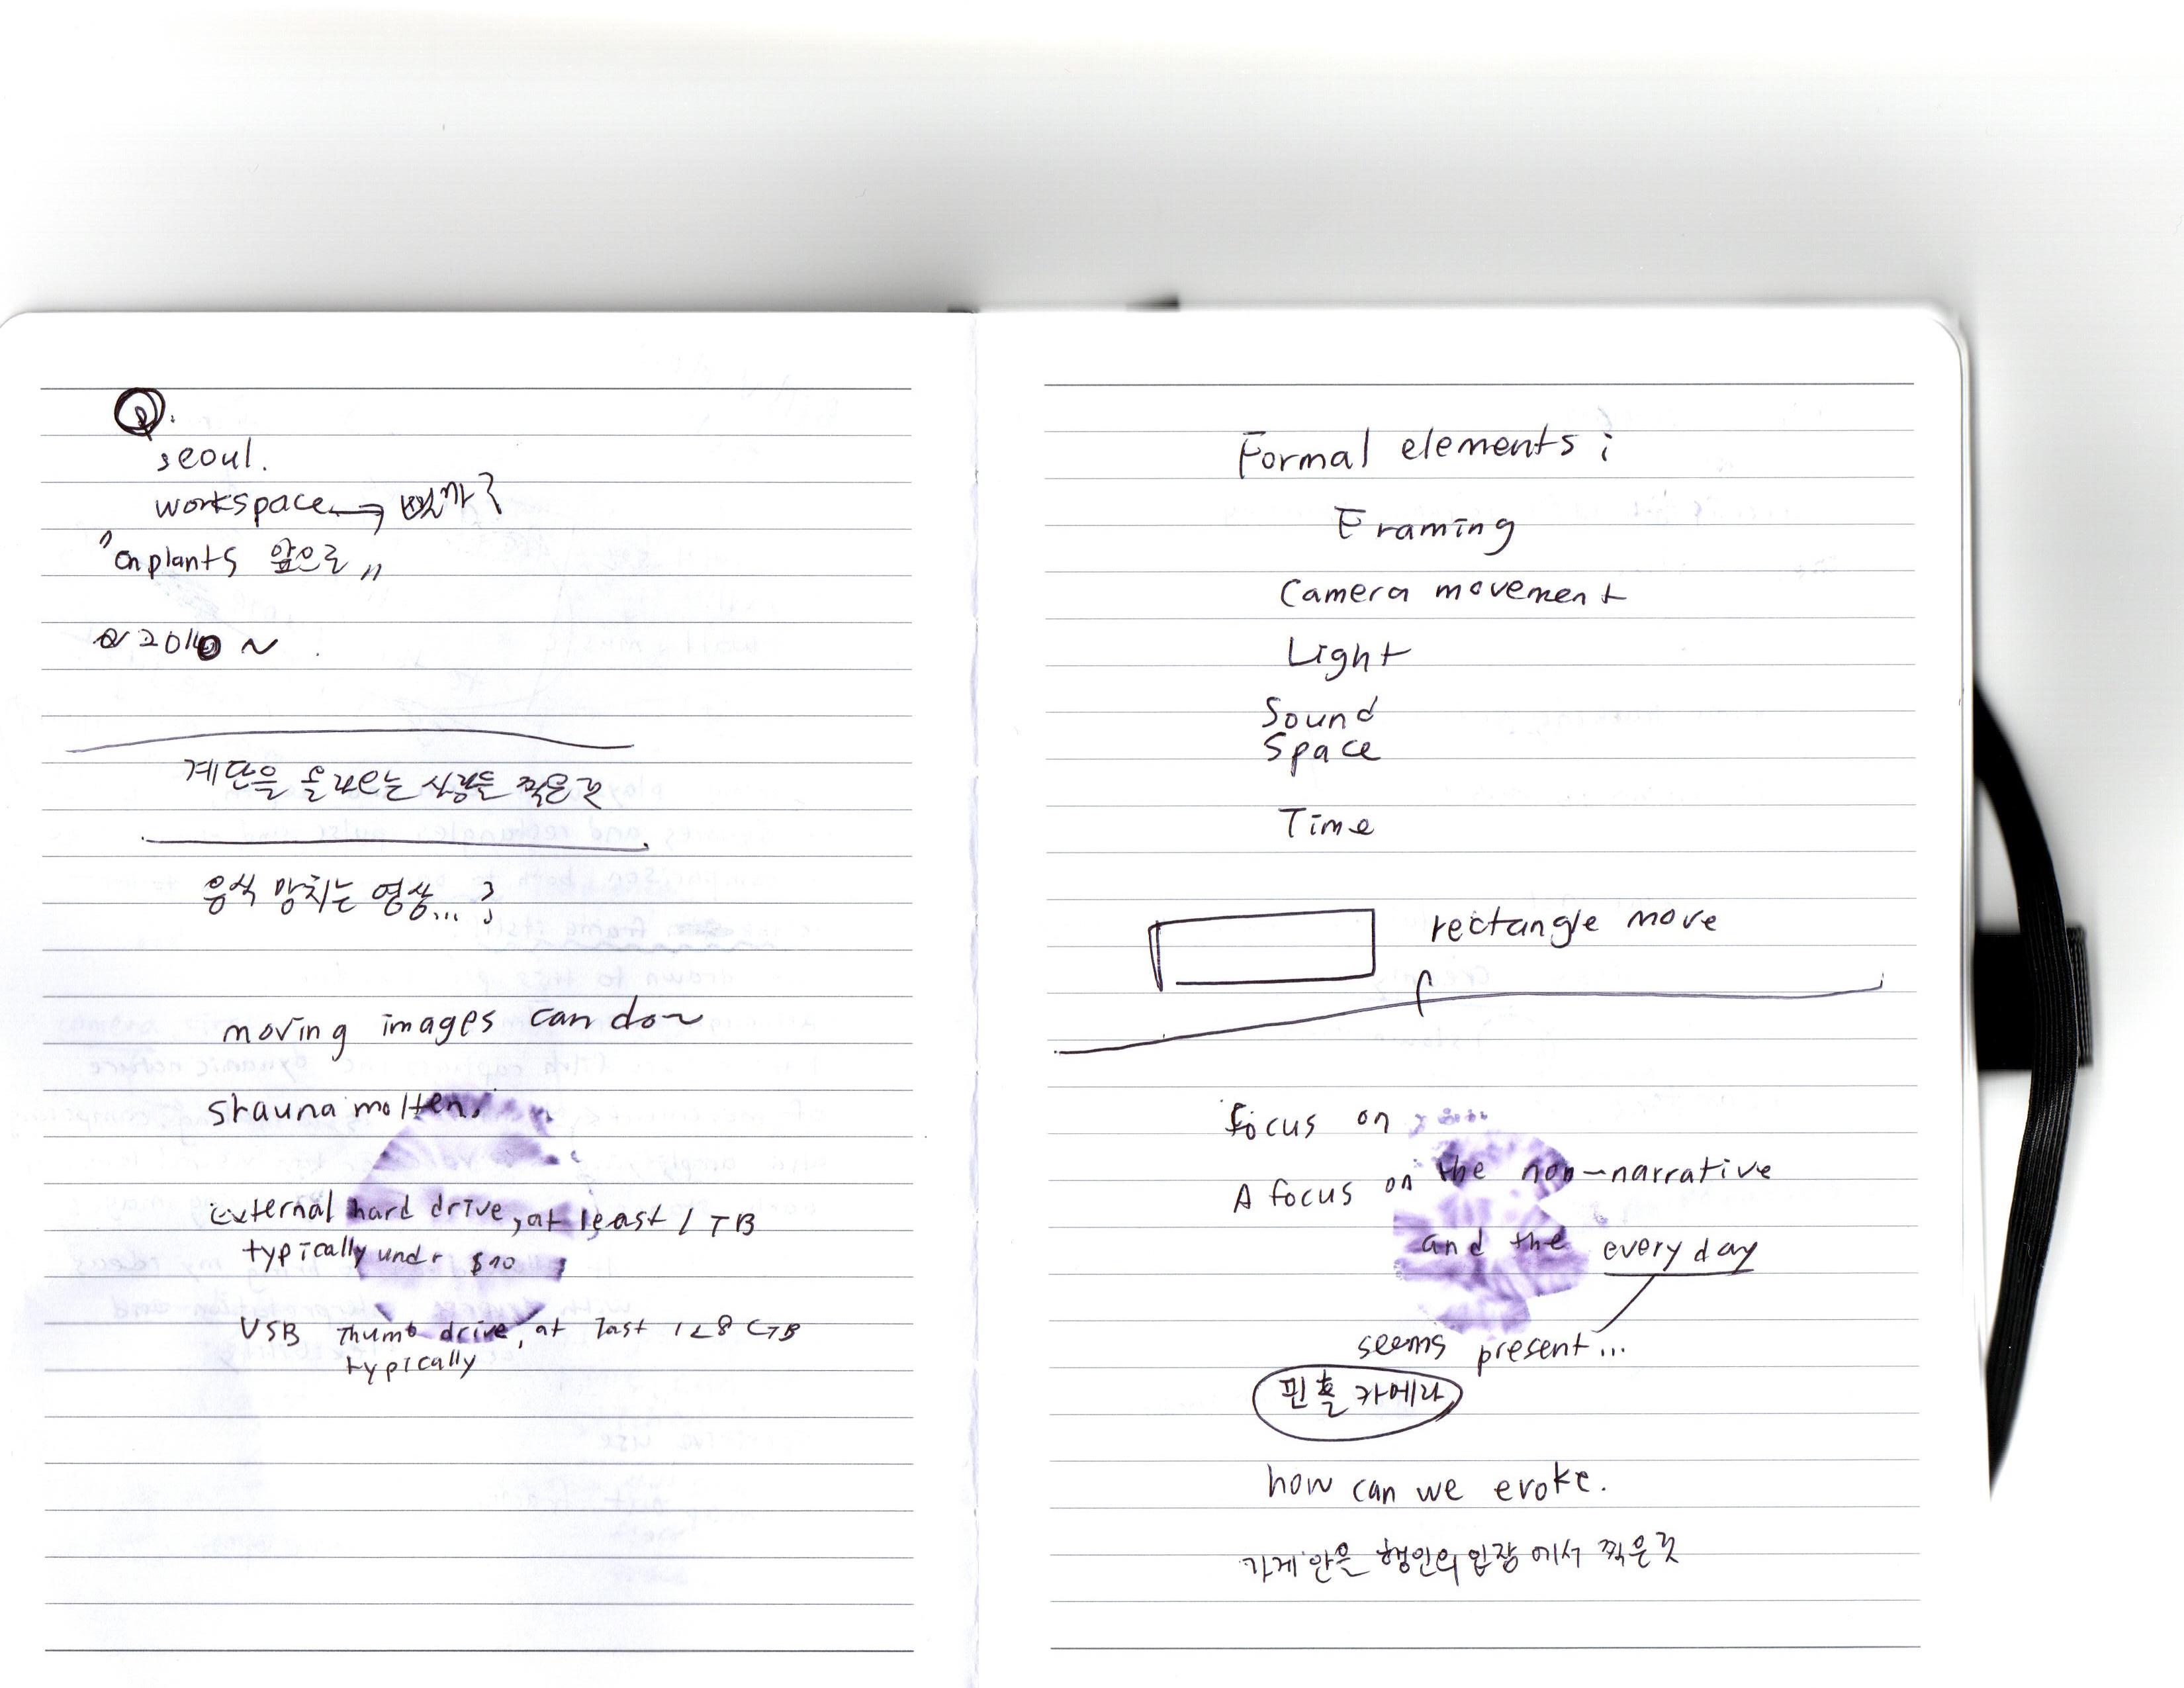 Q.
seoul.
workspace →
"on plants 앞으로"
2010 ~
계단을 올라오는 사람들 찍은 것
음식 망치는 영상...?
moving images can do~
shauna molten.
external hard drive, at least 1 TB
typically undr $70
USB Thumb drive, at last 128 GB
typically
Formal elements:
Framing
Camera movement
Light
Sound
Space
Time
rectangle move
Focus on
A focus on the non-narrative
and the everyday
seems present...
핀홀 카메라
how can we evoke.
가게 안을 행인의 입장에서 찍은 것